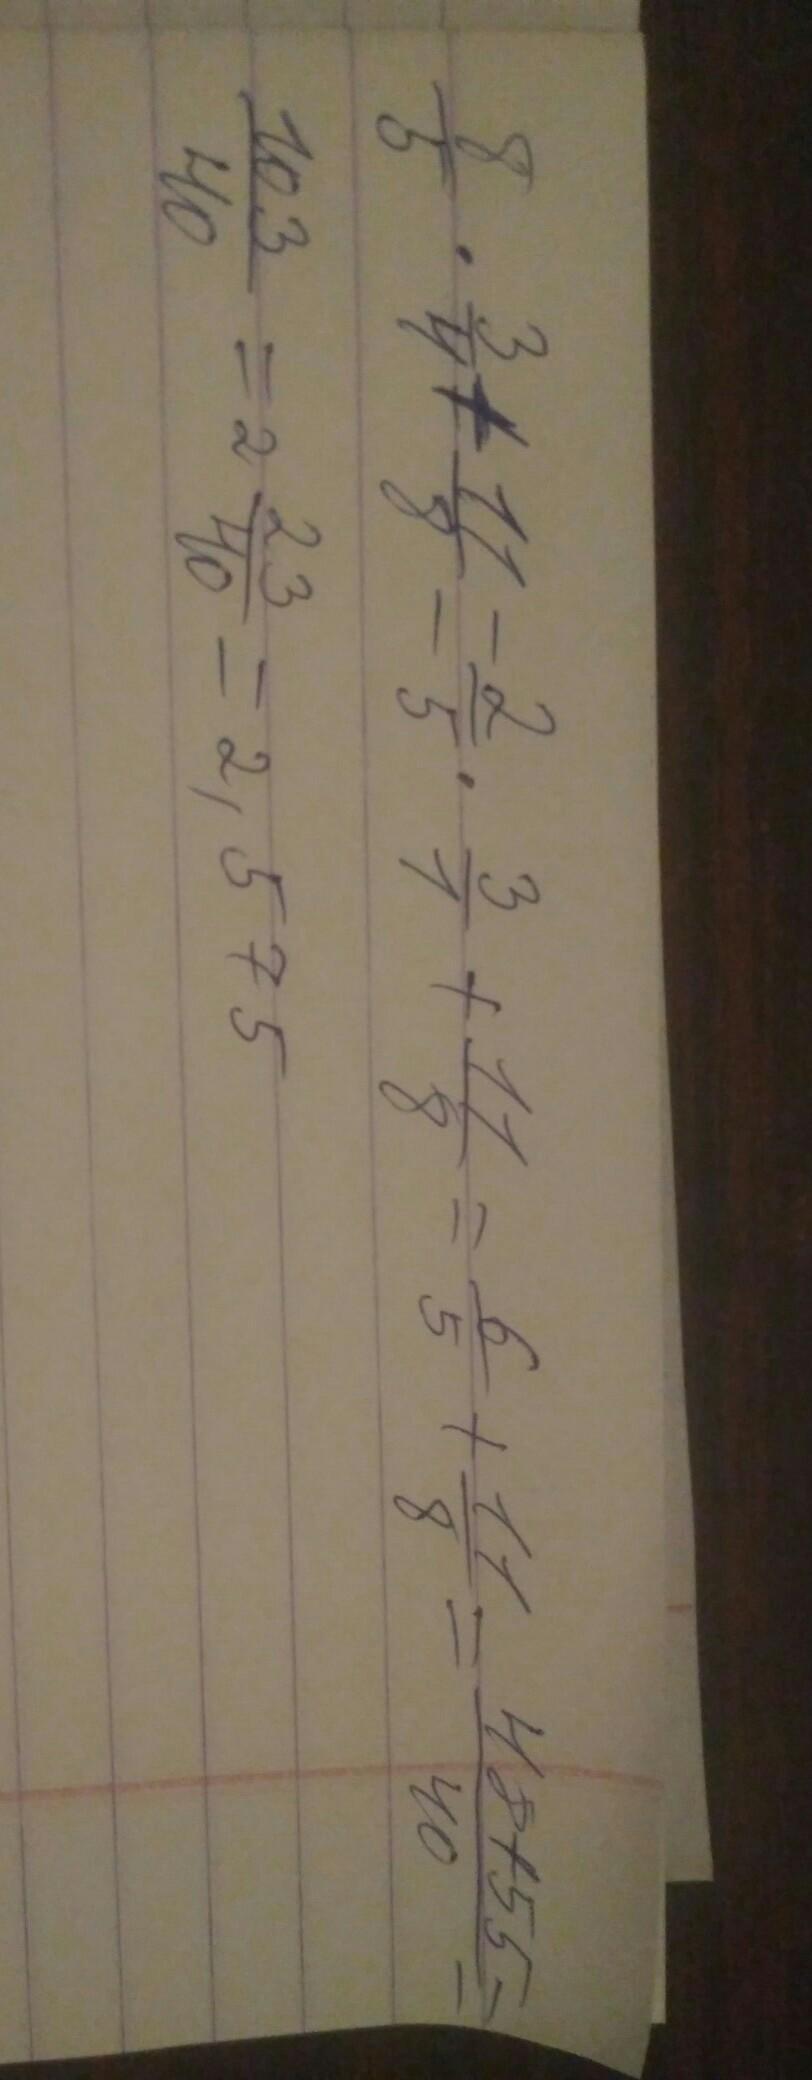 8/5 · 3/4 + 11/8 = 2/5 · 3/1 + 11/8 = 6/5 + 11/8 = 48+55/40 =
103/40 = 2 23/40 = 2,575